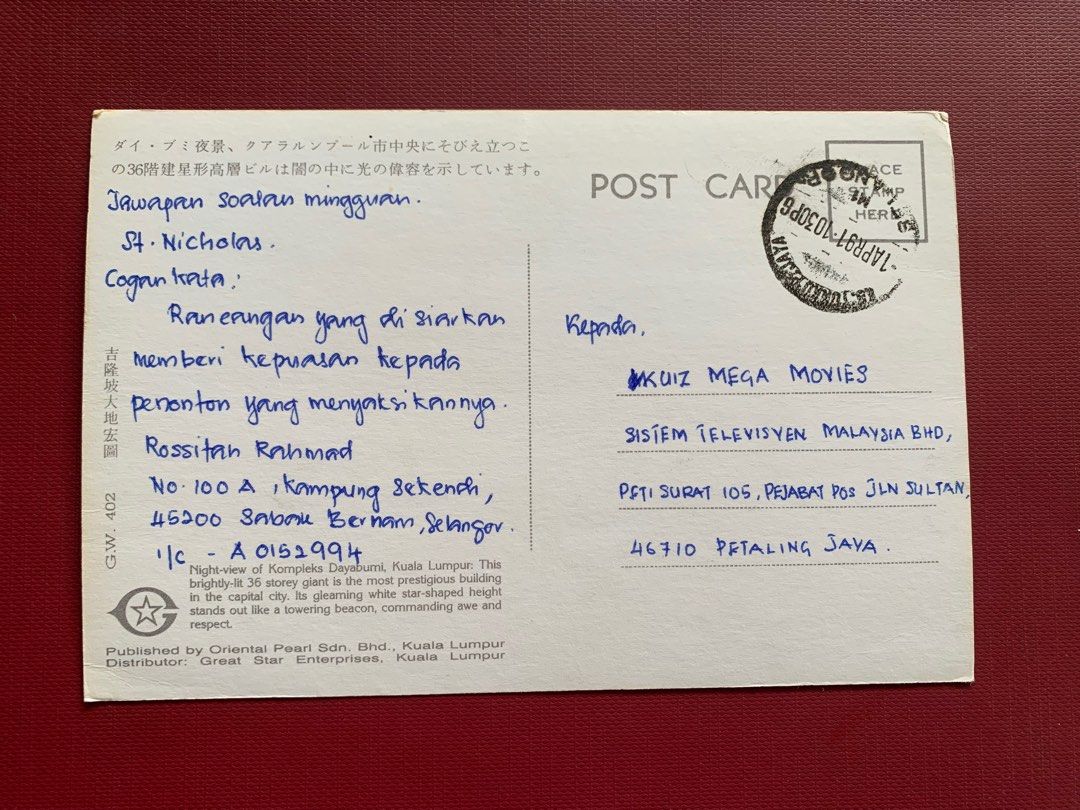 ダイ・ブミ夜景、クアラルンプール市中央にそびえ立つこ
の36階建星形高層ビルは闇の中に光の偉容を示しています。
Jawapan soalan mingguan.
St. Nicholas.
Cogan kata:
Rancangan yang di siarkan
memberi kepuasan kepada
penonton yang menyaksikannya.
Rossitah Rahmad
No. 100 A, Kampung Sekendi,
45200 Sabak Bernam, Selangor.
I/C - A 0152994
吉隆坡大地宏圖
G.W. 402
Night-view of Kompleks Dayabumi, Kuala Lumpur: This
brightly-lit 36 storey giant is the most prestigious building
in the capital city. Its gleaming white star-shaped height
stands out like a towering beacon, commanding awe and
respect.
Published by Oriental Pearl Sdn. Bhd., Kuala Lumpur
Distributor: Great Star Enterprises, Kuala Lumpur
POST CARD
PLACE
STAMP
HERE
-1APR91 1030PG
Kepada,
KUIZ MEGA MOVIES
SISTEM TELEVISYEN MALAYSIA BHD,
PETI SURAT 105, PEJABAT POS JLN SULTAN,
46710 PETALING JAYA.